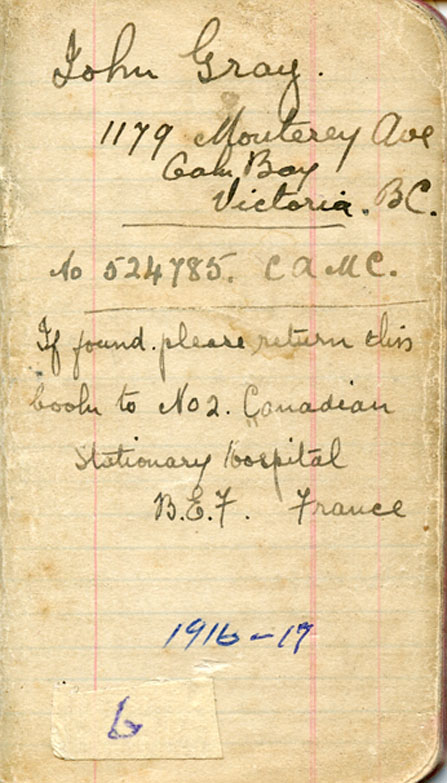 John Gray.
1179 Monterey Ave
Oak Bay
Victoria. BC.
No 524785. C A M C.
If found please return this
book to No 2. Canadian
Stationary Hospital
B.E.F. France
1916-17
6